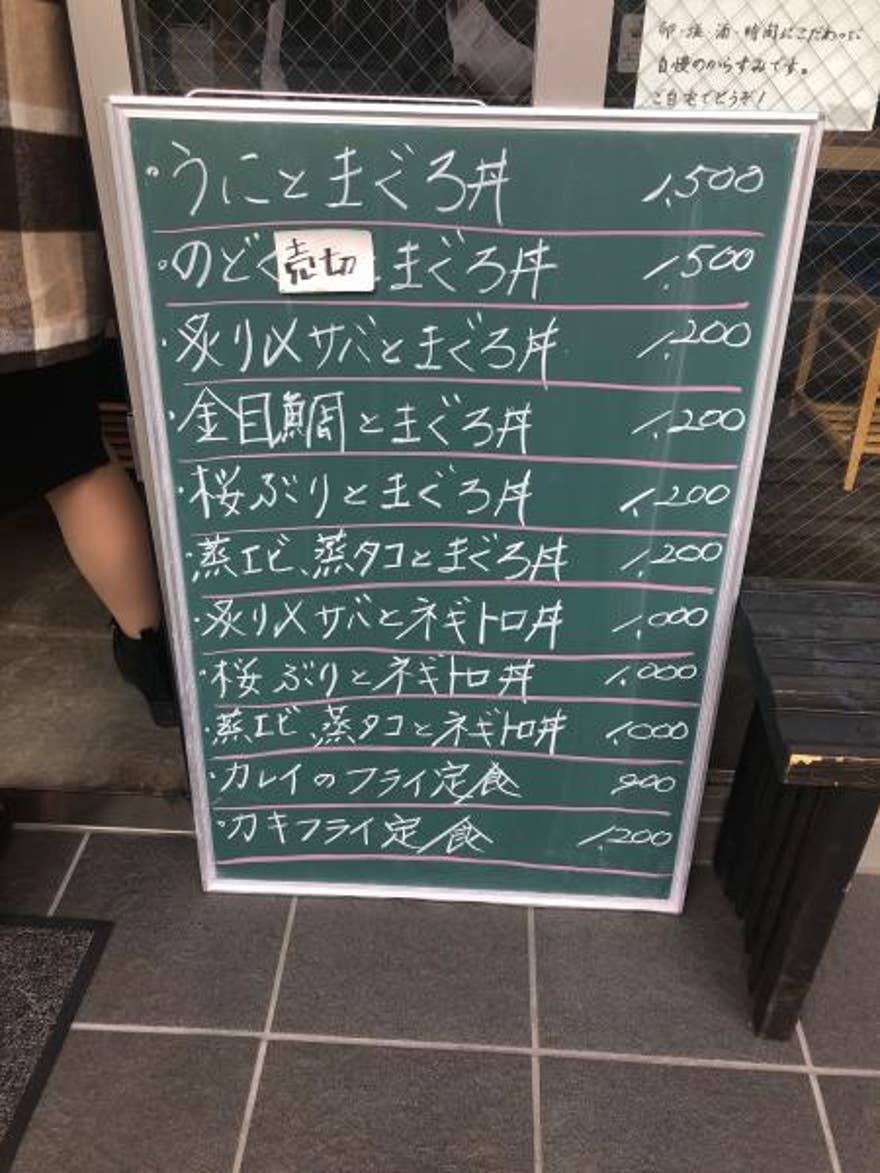 卵・塩・酒・時間にこだわった
自慢のからすみです。
ご自宅でどうぞ!
・うにとまぐろ丼 1,500
・のどく 売切 まぐろ丼 1,500
・炙り〆サバとまぐろ丼 1,200
・金目鯛とまぐろ丼 1,200
・桜ぶりとまぐろ丼 1,200
・蒸エビ、蒸タコとまぐろ丼 1,200
・炙り〆サバとネギトロ丼 1,000
・桜ぶりとネギトロ丼 1,000
・蒸エビ、蒸タコとネギトロ丼 1,000
・カレイのフライ定食 900
・カキフライ定食 1,200